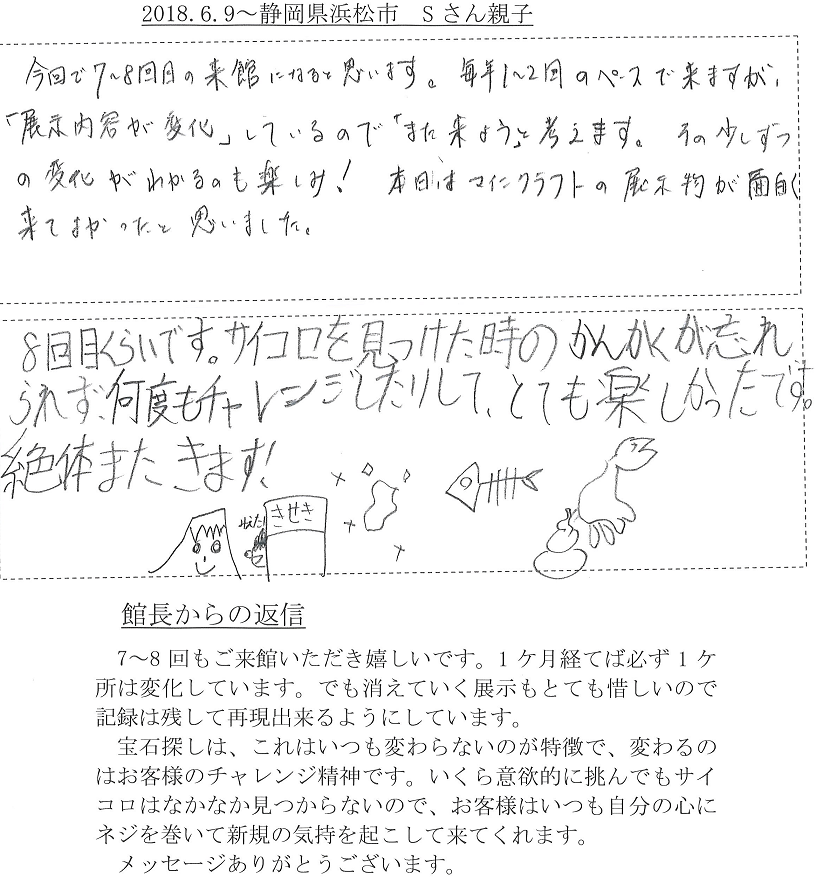 2018.6.9～静岡県浜松市　Sさん親子
今回で7～8回目の来館になると思います。毎年1～2回のペースで来ますが、
「展示内容が変化」しているので「また来よう」と考えます。その少しずつ
の変化がわかるのも楽しみ！　本日はマインクラフトの展示物が面白く
来てよかったと思いました。
8回目くらいです。サイコロを見つけた時のかんかくが忘れ
られず、何度もチャレンジしたりして、とても楽しかったです。
絶体またきます！
きせき
館長からの返信
7～8回もご来館いただき嬉しいです。1ケ月経てば必ず1ケ
所は変化しています。でも消えていく展示もとても惜しいので
記録は残して再現出来るようにしています。
宝石探しは、これはいつも変わらないのが特徴で、変わるの
はお客様のチャレンジ精神です。いくら意欲的に挑んでもサイ
コロはなかなか見つからないので、お客様はいつも自分の心に
ネジを巻いて新規の気持を起こして来てくれます。
メッセージありがとうございます。